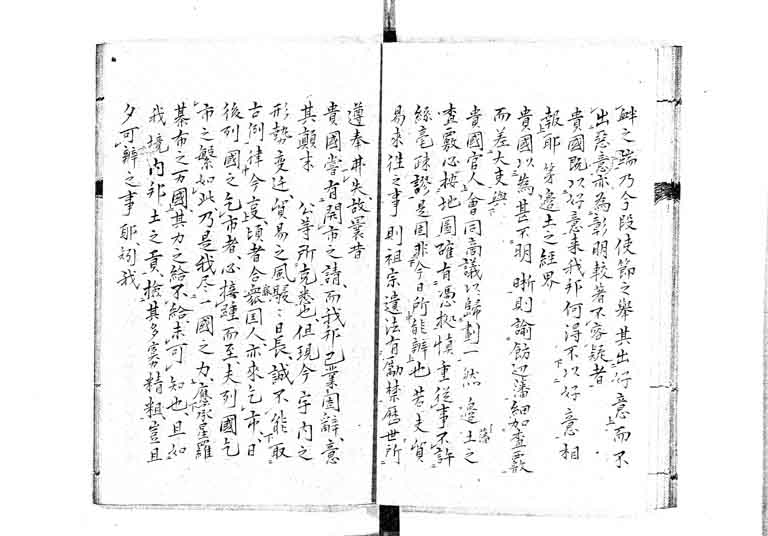 衅之端乃今段使節之舉其出好意而不
出惡意亦為彰明較著不容疑者
貴國既以好意来我邦何得不以好意相
報耶第邊土之経界
貴國以為甚不明晰則論飭辺藩細如査覈
而差大吏與
貴國官人會同商議以歸劃一然邊土之
査覈必按地圖確有憑拠慎重従事不許
絲毫疎謬是固非今日所能辨也若夫貿
易来往之事則祖宗遺法有厳禁歴世所
遵奉弗失故曩昔
貴國嘗有開市之請而我邦已業固辭意
其顛末公等所克悉也但現今宇内之
形勢変迁貿易之風駸々日長誠不能取
古例律今度頃者合衆国人亦來乞市日
後列國之乞市者必接踵而至夫列國乞
市之繁如此乃是我尽一國之力應星羅
棊布之万國其力之給不給未可知也且如
我境内邦土之貢撿其多寡精粗豈且
夕可辨之事耶矧我